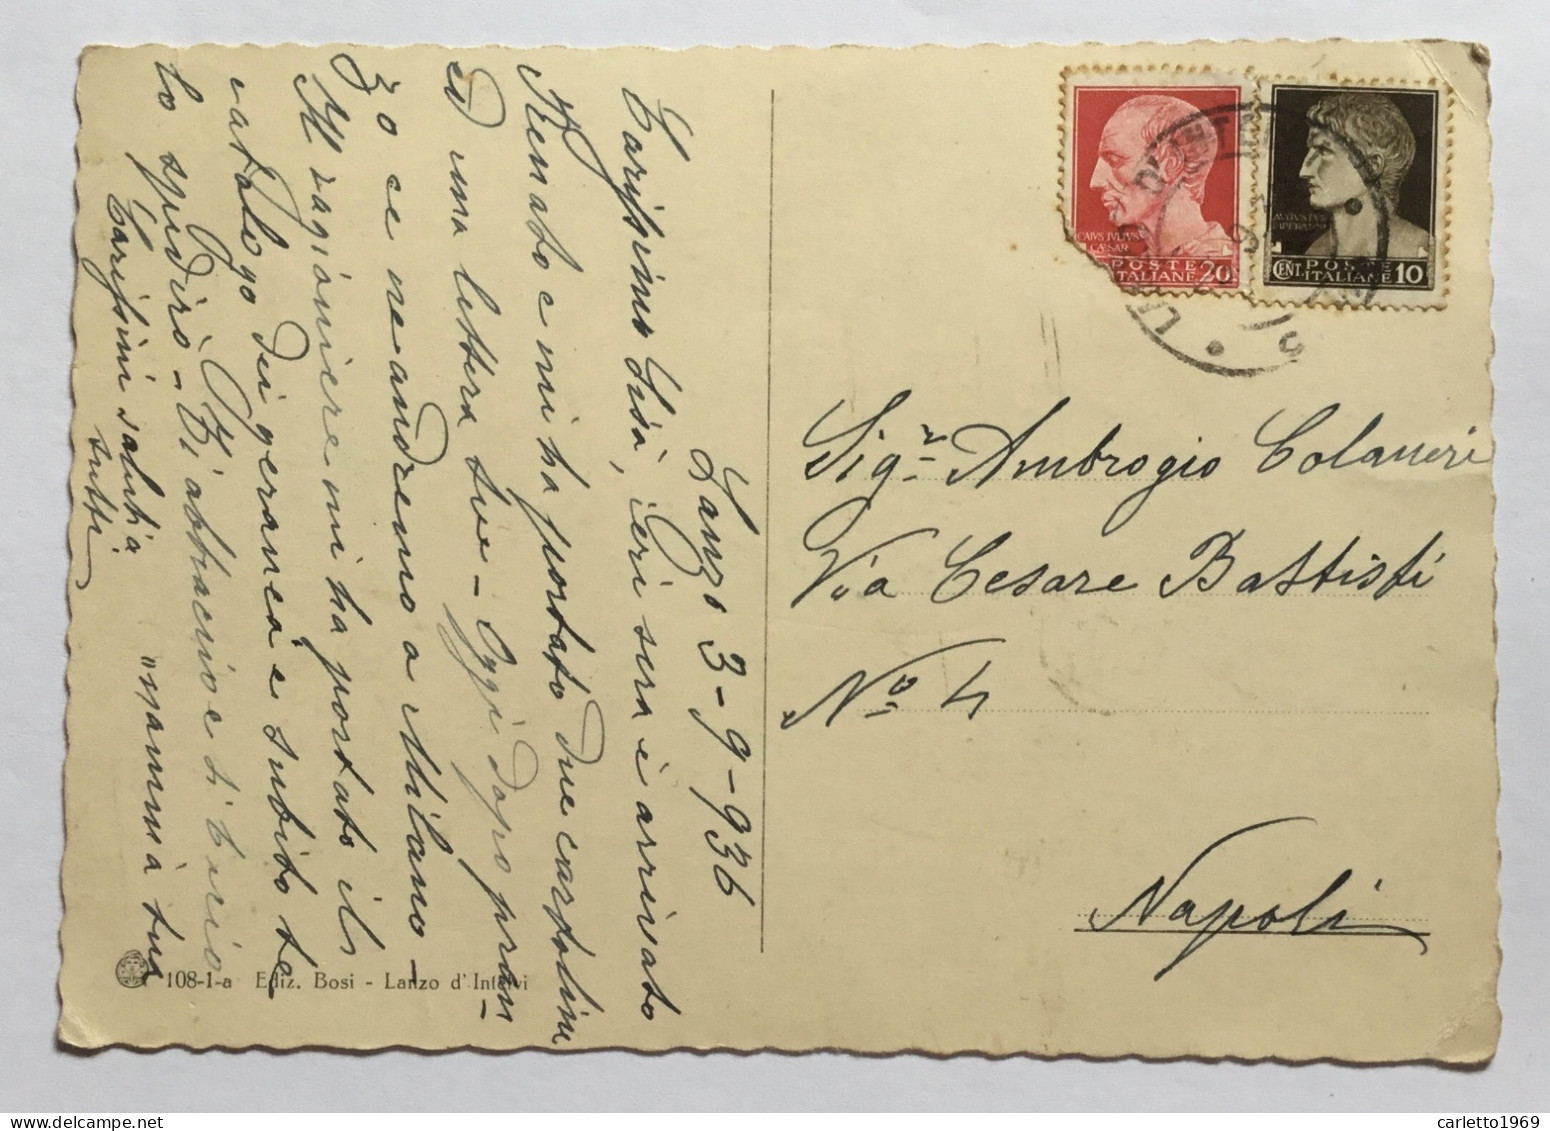 Lanzo 3-9-936
Carissimo Gigi, ieri sera è arrivato
Renato e mi ha portato due cartoline
ed una lettera tue - Oggi dopo pran-
zo ce ne andremo a Milano -
Il ragioniere mi ha portato il
catalogo dei gerani e subito te
lo spedirò - Ti abbraccio e ti bacio
Carissimi saluti a
tutti.
"mamma tua
Sig.r Ambrogio Colaneri
Via Cesare Battisti
No 4
Napoli
CAIVS IVLIVS
CÆSAR
POSTE
ITALIANE 20
AVGVSTVS
IMPERATOR
POSTE
CENT. ITALIANE 10
108-1-a Ediz. Bosi - Lanzo d'Intelvi
carletto1969